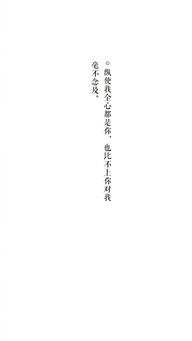 ○纵使我全心都是你，也比不上你对我
毫不念及。